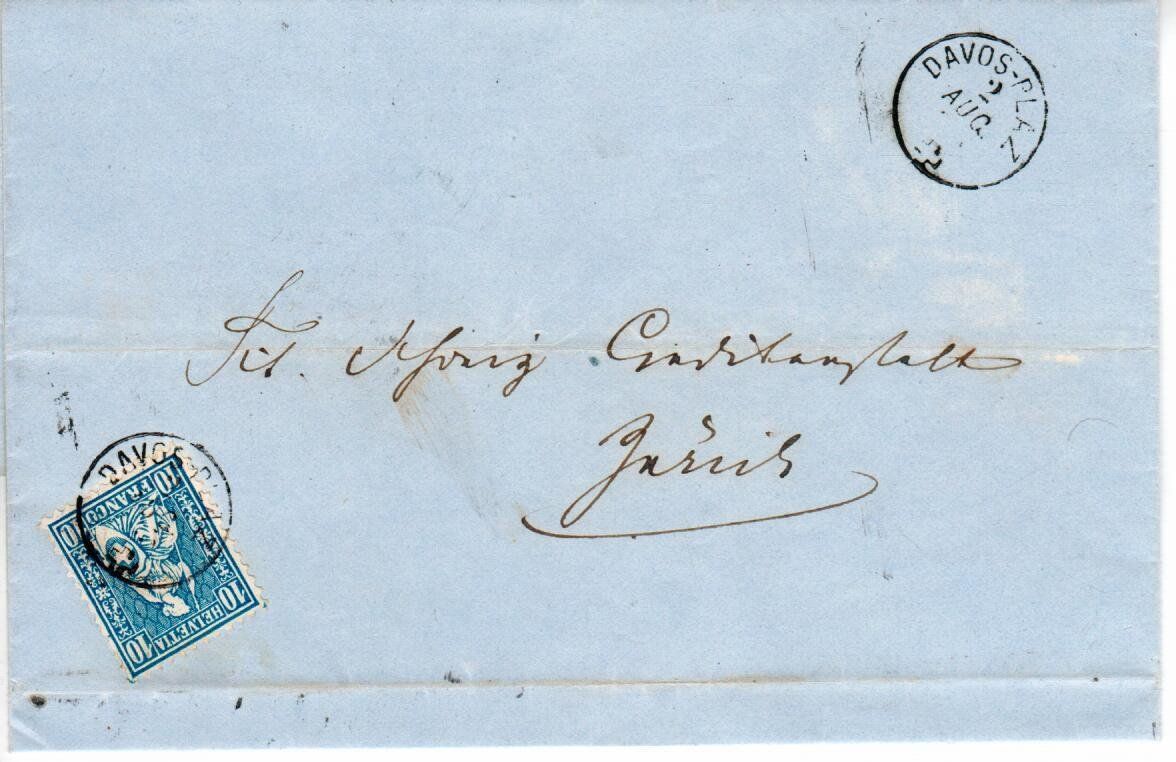 DAVOS-PLAZ
2
AUG.
Tit. Schweiz Creditanstalt
Zürich
DAVOS-PLAZ
10 FRANCO 10
10 HELVETIA 10